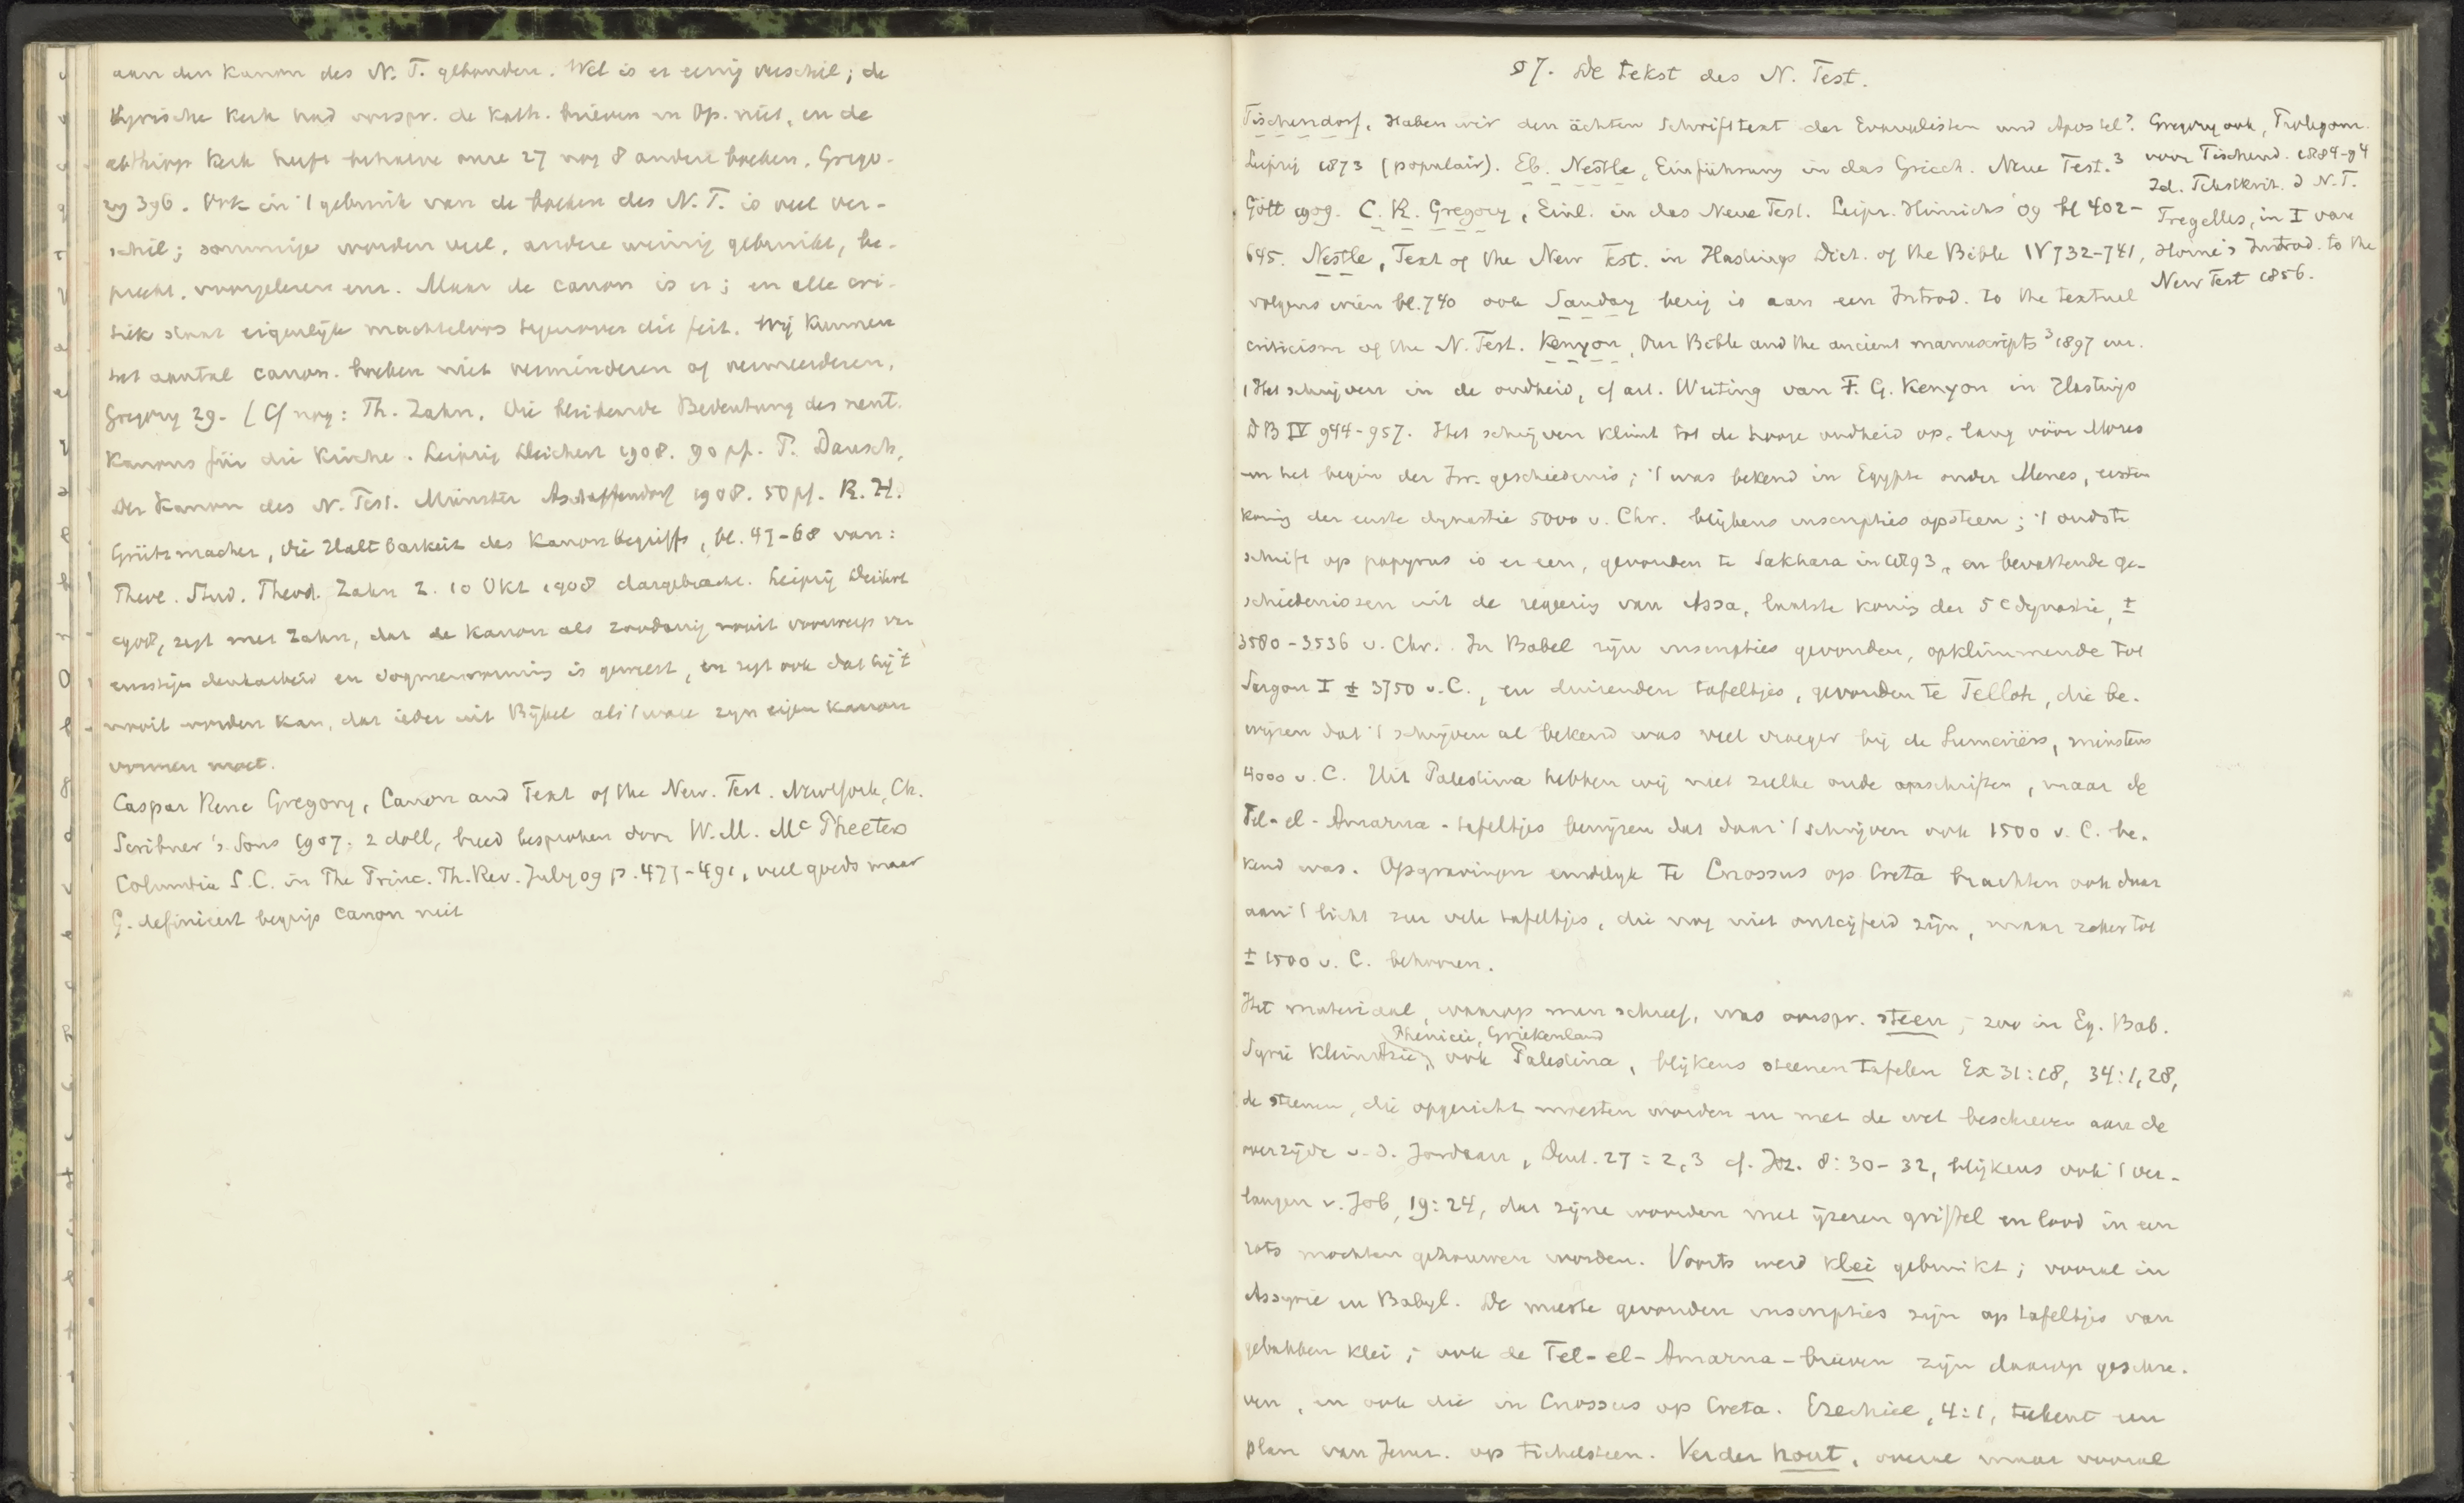 aan den kanon des N. T. gebonden. Wel is er eenig verschil; de
Syrische kerk had oorspr. de kath. brieven en Op. niet, en de
aethiop kerk heeft behalve onze 27 nog 8 andere boeken. Grego-
ry 396. Ook in 't gebruik van de boeken des N. T. is veel ver-
schil; sommige worden veel, andere weinig gebruikt, be-
preekt, voorgelezen enz. Maar de canon is er; en alle cri-
tiek staat eigenlijk machteloos tegenover dit feit. Wij kunnen
het aantal canon. boeken niet verminderen of vermeerderen.
Gregory 29. (Cf nog: Th. Zahn, Die bleibende Bedeutung des neut.
Kanons für die Kirche. Leipzig Deichert 1908. 90 pf. P. Dausch,
Der Kanon des N. Test. Münster Aschaffendorf 1908. 50 pf. R. H.
Grützmacher, Die Haltbarkeit des Kanonbegriffs, bl. 47-68 van:
Theol. Stud. Theod. Zahn z. 10 Okt 1908 dargebracht. Leipzig Deichert
1908, zegt met Zahn, dat de kanon als zoodanig nooit voorwerp van
ernstige denkarbeid en dogmenvorming is geweest, en zegt ook dat hij 't
nooit worden kan, dat ieder uit Bijbel als 't ware zijn eigen kanon
vormen moet.
Caspar Rene Gregory, Canon and Text of the New. Test. New York, Ch.
Scribner's Sons 1907. 2 doll, breed besproken door W. M. Mc Pheeters
Columbia S. C. in The Princ. Th. Rev. July 09 p. 477-491, veel goeds maar
G. definieert begrip canon niet
§ 7. De tekst des N. Test.
Tischendorf, Haben wir den ächten Schrifttext der Evangelisten und Apostel?
Leipzig 1873 (populair). Eb. Nestle, Einführung in das Griech. Neue Test.³
Gött 1909. C. R. Gregory, Einl. in das Neue Test. Leipz. Hinrichs 09 bl 402-
645. Nestle, Text of the New Test. in Hastings Dict. of the Bible IV 732-741,
volgens wien bl. 740 ook Sanday bezig is aan een Introd. to the textual
criticism of the N. Test. Kenyon, Our Bible and the ancient manuscripts ³ 1897 enz.
Gregory ook, Prolegom.
voor Tischend. 1884-94
Id. Textkrit. d N. T.
Tregelles, in I van
Horne's Introd. to the
New Test 1856.
Het schrijven in de oudheid, cf art. Writing van F. G. Kenyon in Hastings
DB IV 944-957. Het schrijven klimt tot de hooge oudheid op, lang vóór Mozes
en het begin der Isr. geschiedenis; 't was bekend in Egypte onder Menes, eersten
koning der eerste dynastie 5000 v. Chr. blijkens inscripties op steen; 't oudste
schrift op papyrus is er een, gevonden te Sakhara in 1893, en bevattende ge-
schiedenissen uit de regeering van Assa, laatste koning der 5e dynastie, ±
3580-3536 v. Chr. In Babel zijn inscripties gevonden, opklimmende tot
Sargon I ± 3750 v. C., en duizenden tafeltjes, gevonden te Telloh, die be-
wijzen dat 't schrijven al bekend was veel vroeger bij de Sumeriërs, minstens
4000 v. C. Uit Palestina hebben wij niet zulke oude opschriften, maar de
Tel-el-Amarna-tafeltjes bewijzen dat daar 't schrijven ook 1500 v. C. be-
kend was. Opgravingen eindelijk te Cnossus op Creta brachten ook daar
aan 't licht zeer vele tafeltjes, die nog niet ontcijferd zijn, maar zeker tot
± 1500 v. C. behooren.
Het materiaal, waarop men schreef, was oorspr. steen; zoo in Eg. Bab.
Phenicië, Griekenland
Syrië Kleinazië, ook Palestina, blijkens steenen tafelen Ex 31:18, 34:1, 28,
de steenen, die opgericht moesten worden en met de wet beschreven aan de
overzijde v. d. Jordaan, Deut. 27:2,3 cf. Joz. 8:30-32, blijkens ook 't ver-
langen v. Job, 19:24, dat zijne woorden met ijzeren griffel en lood in een
rots mochten gehouwen worden. Voorts werd klei gebruikt; vooral in
Assyrië en Babyl. De meeste gevonden inscripties zijn op tafeltjes van
gebakken klei; ook de Tel-el-Amarna-brieven zijn daarop geschre-
ven, en ook die in Cnossus op Creta. Ezechiel, 4:1, teekent een
plan van Jeruz. op tichelsteen. Verder hout, overal maar vooral